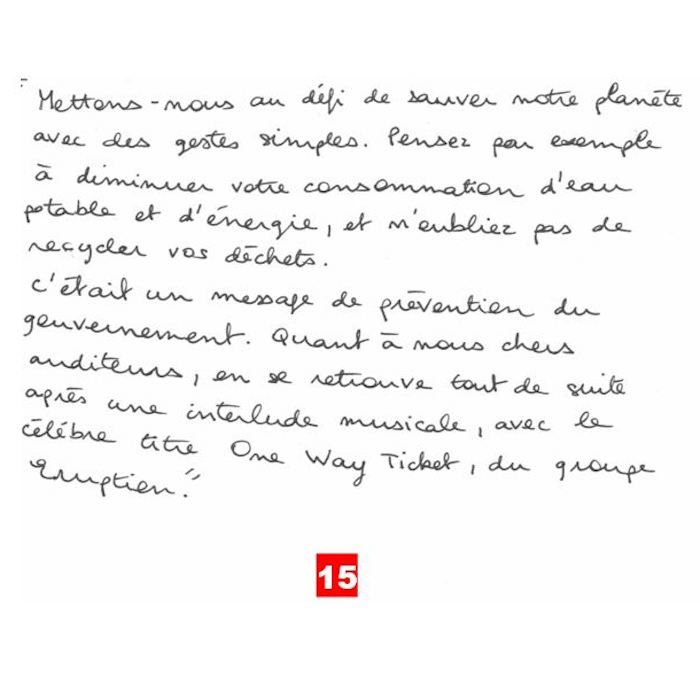 Mettons-nous au défi de sauver notre planète
avec des gestes simples. Pensez par exemple
à diminuer votre consommation d'eau
potable et d'énergie, et n'oubliez pas de
recycler vos déchets.
C'était un message de prévention du
gouvernement. Quant à nous chers
auditeurs, on se retrouve tout de suite
après une interlude musicale, avec le
célèbre titre One Way Ticket, du groupe
Eruption."
15